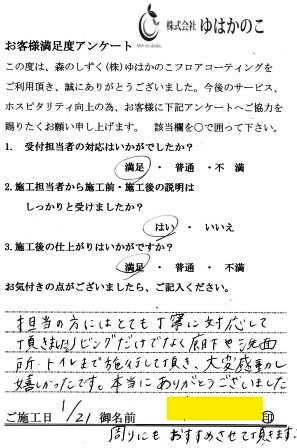 株式会社 ゆはかのこ
お客様満足度アンケート
この度は、森のしずく(株)ゆはかのこフロアコーティングを
ご利用頂き、誠にありがとうございました。今後のサービス、
ホスピタリティ向上の為、お客様に下記アンケートへご協力を
賜りたくお願い申し上げます。 該当欄を○で囲って下さい。
1. 受付担当者の対応はいかがでしたか?
満足 ・ 普通 ・ 不満
2.施工担当者から施工前・施工後の説明は
しっかりと受けましたか?
はい ・ いいえ
3.施工後の仕上がりはいかがですか?
満足 ・ 普通 ・ 不満
お気付きの点がございましたら、ご記入ください。
担当の方にはとても丁寧に対応して
頂きました。リビングだけでなく廊下や洗面
所、トイレまで施行して頂き、大変感動し
嬉しかったです。本当にありがとうございました
ご施工日 1/21 御名前 印
周りにもおすすめさせて頂きます